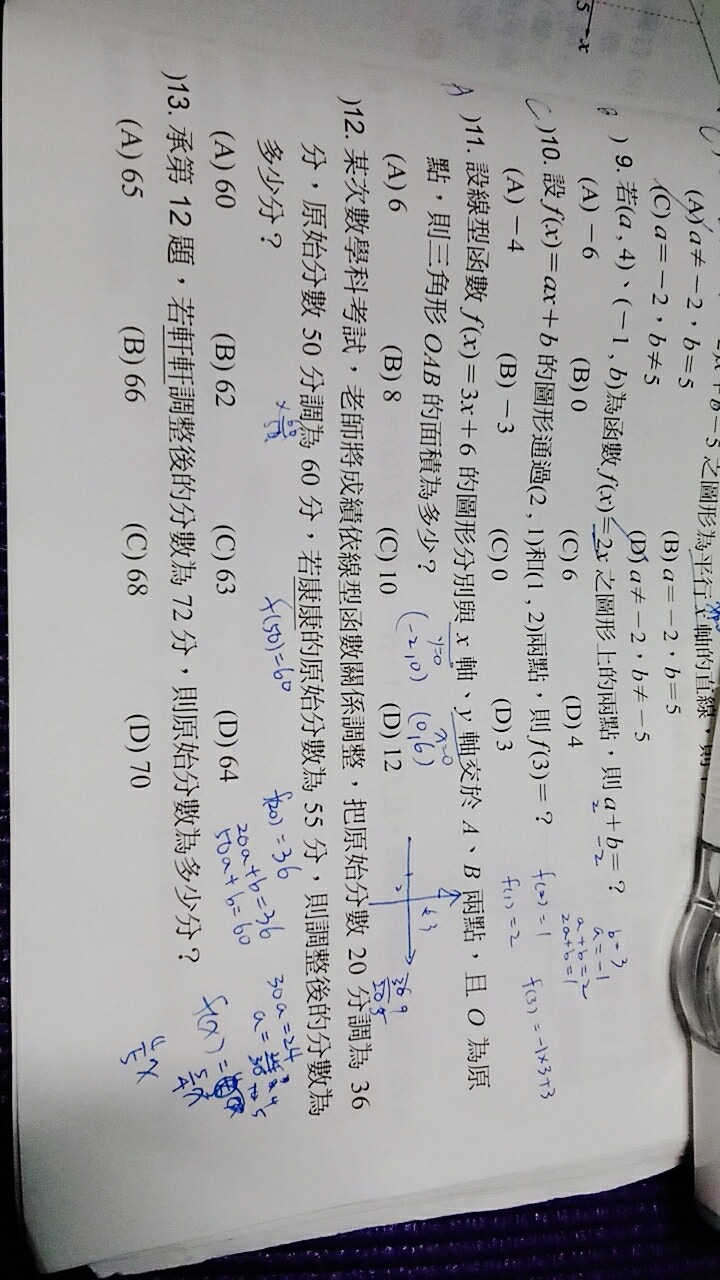 5
x
2x+b-5 之圖形為平行x軸的直線，則
(A) a≠-2，b=5
(B) a=-2，b=5
(C) a=-2，b≠5
(D) a≠-2，b≠-5
B )9. 若(a , 4)、(-1 , b)為函數f(x)=2x之圖形上的兩點，則a+b=？
2 -2
(A) -6 (B) 0 (C) 6 (D) 4
a+b=2
2a+b=1
a=-1
b=3
C )10. 設f(x)=ax+b的圖形通過(2 , 1)和(1 , 2)兩點，則f(3)=？
f(2)=1
f(1)=2
f(3)=-1×3+3
(A) -4 (B) -3 (C) 0 (D) 3
A )11. 設線型函數f(x)=3x+6的圖形分別與x軸、y軸交於A、B兩點，且O為原
點，則三角形OAB的面積為多少？
y=0
(-2,0)
x=0
(0,6)
(A) 6 (B) 8 (C) 10 (D) 12
)12. 某次數學科考試，老師將成績依線型函數關係調整，把原始分數20分調為36
分，原始分數50分調為60分，若康康的原始分數為55分，則調整後的分數為
多少分？
f(50)=60
f(20)=36
20a+b=36
50a+b=60
30a=24
(A) 60 (B) 62 (C) 63 (D) 64
)13. 承第12題，若軒軒調整後的分數為72分，則原始分數為多少分？
(A) 65 (B) 66 (C) 68 (D) 70
f(x)=